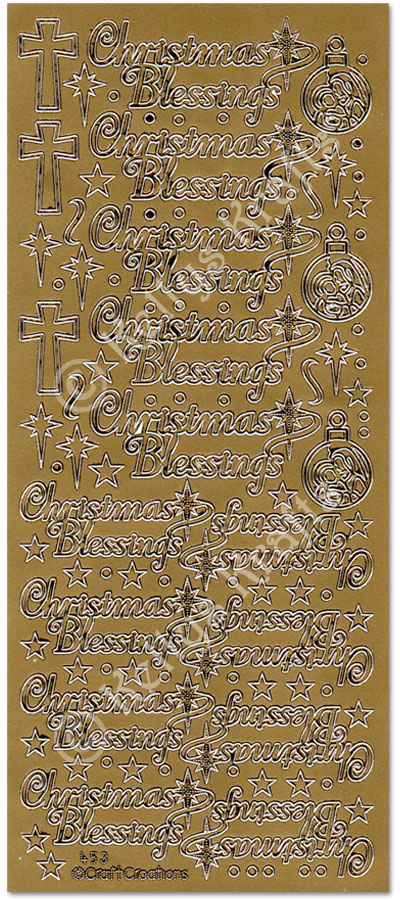 Christmas
Blessings
Christmas
Blessings
Christmas
Blessings
Christmas
Blessings
Christmas
Blessings
Christmas
Blessings
Christmas
Blessings
Christmas
Blessings
Christmas
Blessings
Christmas
Blessings
Christmas
Blessings
Christmas
Blessings
Christmas
Blessings
453
©CraftCreations
© Kellys Krafts
© Kellys Krafts